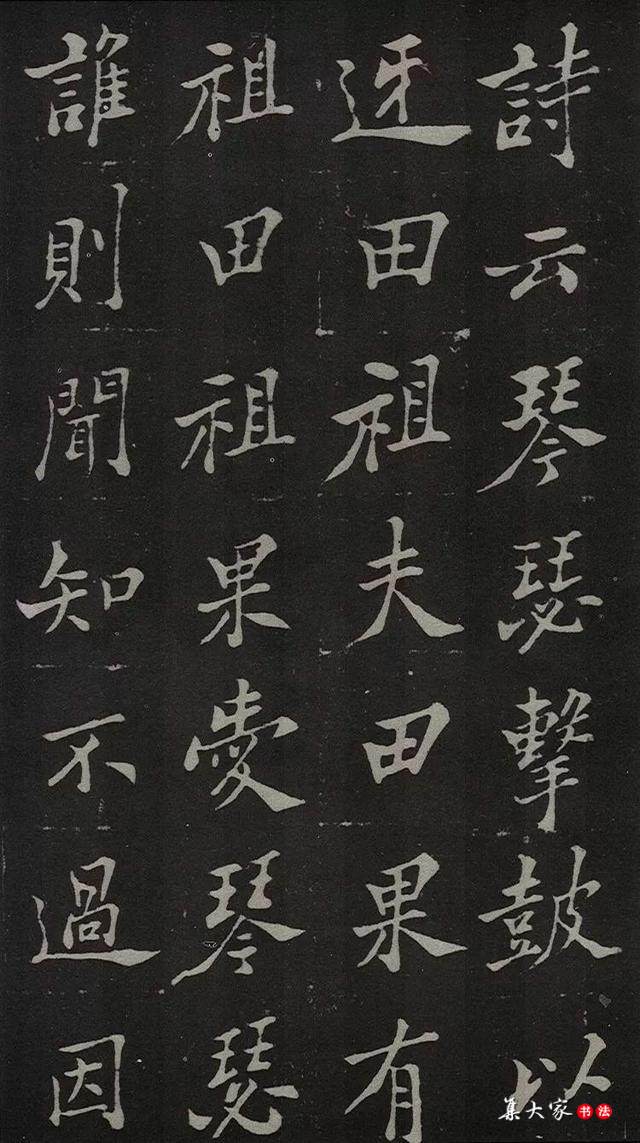 詩云琴瑟擊鼓以
迓田祖夫田果有
祖田祖果愛琴瑟
誰則聞知不過因
集大家书法